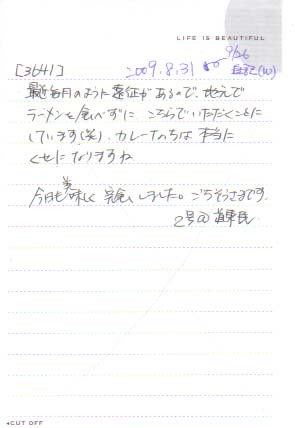 LIFE IS BEAUTIFUL
[3641]
2009.8.31 9/26
最近毎月のように遠征があるので、地元で
ラーメンを食べずに こちらでいただくことに
しています(笑)。カレーラーメンは本当に
くせになりますね
今日も美味しく 完食しました。ごちそうさまです。
2号@道東民
◂CUT OFF